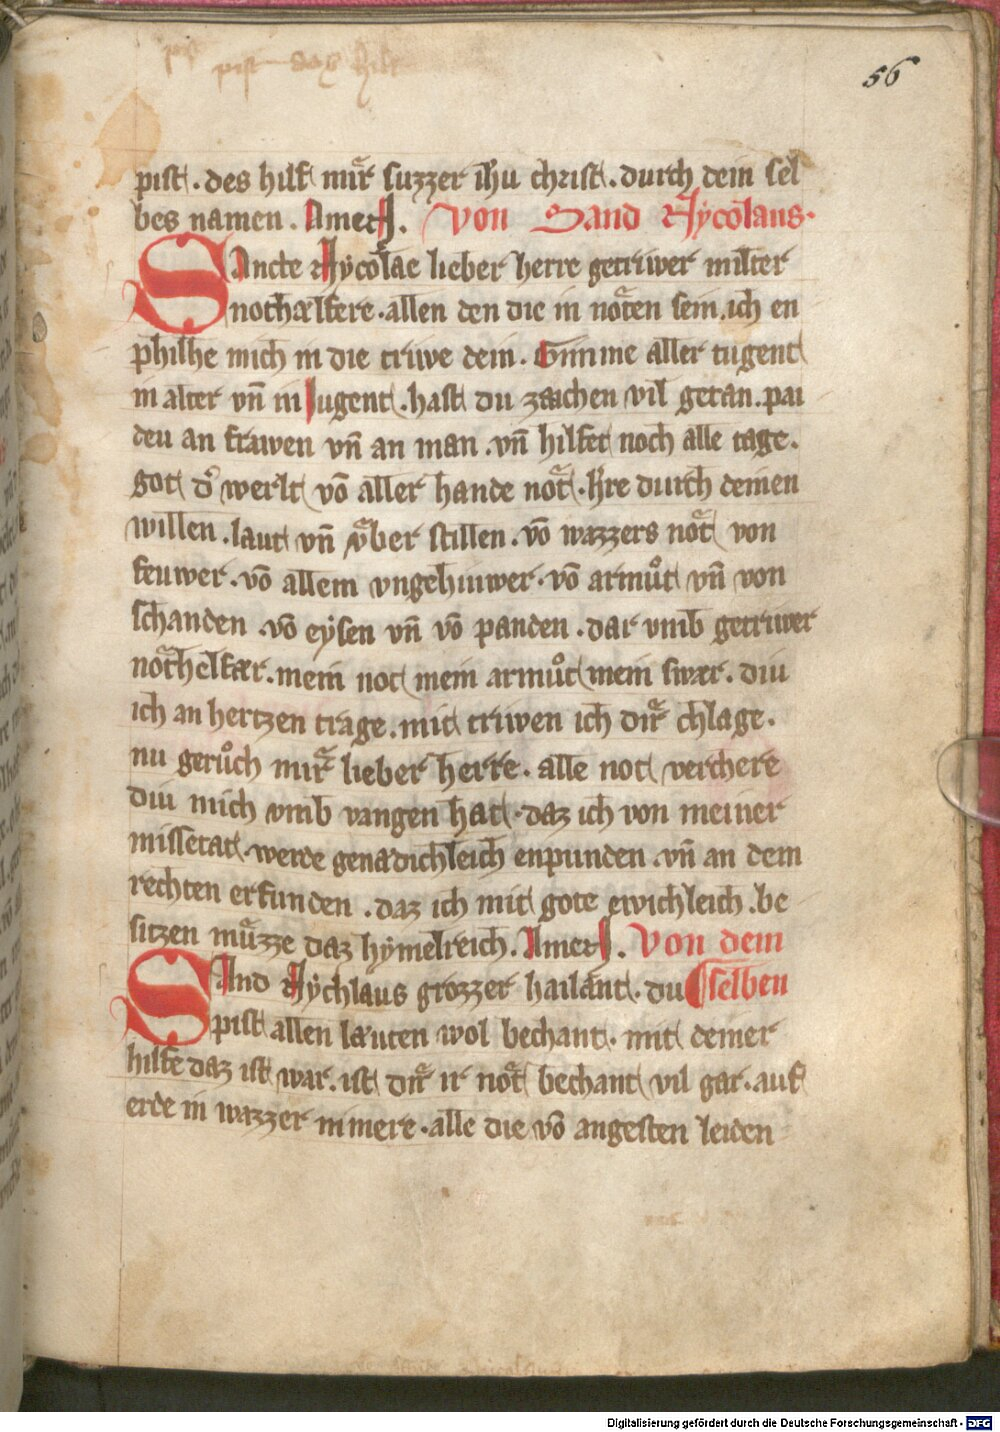 pist daz hilf
56
pist . des hilf mir suzzer ihu christ . durch dein sel
bes namen . Amen . Von Sand Nycolaus .
Sancte Nycolae lieber herre getriwer milter
nothælfere . allen den die in nöten sein . ich en
philhe mich in die triwe dein . Gimme aller tugent
in alter vn̄ in Jugent . hast du zaichen vil getan . pai
deu an frawen vn̄ an man . vn̄ hilfet noch alle tage .
got d͛ werlt vō aller hande not . h͛re durch deinen
willen . laut vn̄ vͤber stillen . vō wazzers not von
feuwer . vō allem vngehiuwer . vō armuͦt vn̄ von
schanden . vō eysen vn̄ vō panden . dar vmb getriwer
nothelfær . mein not mein armuͦt mein swær . diu
ich an hertzen trage . mit triwen ich dir chlage .
nu geruͦch mir lieber herre . alle not verchere
diu mich vmb vangen hat . daz ich von meiner
missetat . werde genædichleich enpunden . vn̄ an dem
rechten erfunden . daz ich mit gote ewichleich . be
sitzen muͤzze daz hymelreich . Amen . Von dem
Sand Nychlaus grozzer hailant . du selben
pist allen læuten wol bechant . mit deiner
hilfe daz ist war . ist dir ir not bechant vil gar . auf
erde in wazzer in mere . alle die vō angesten leiden
Digitalisierung gefördert durch die Deutsche Forschungsgemeinschaft - DFG